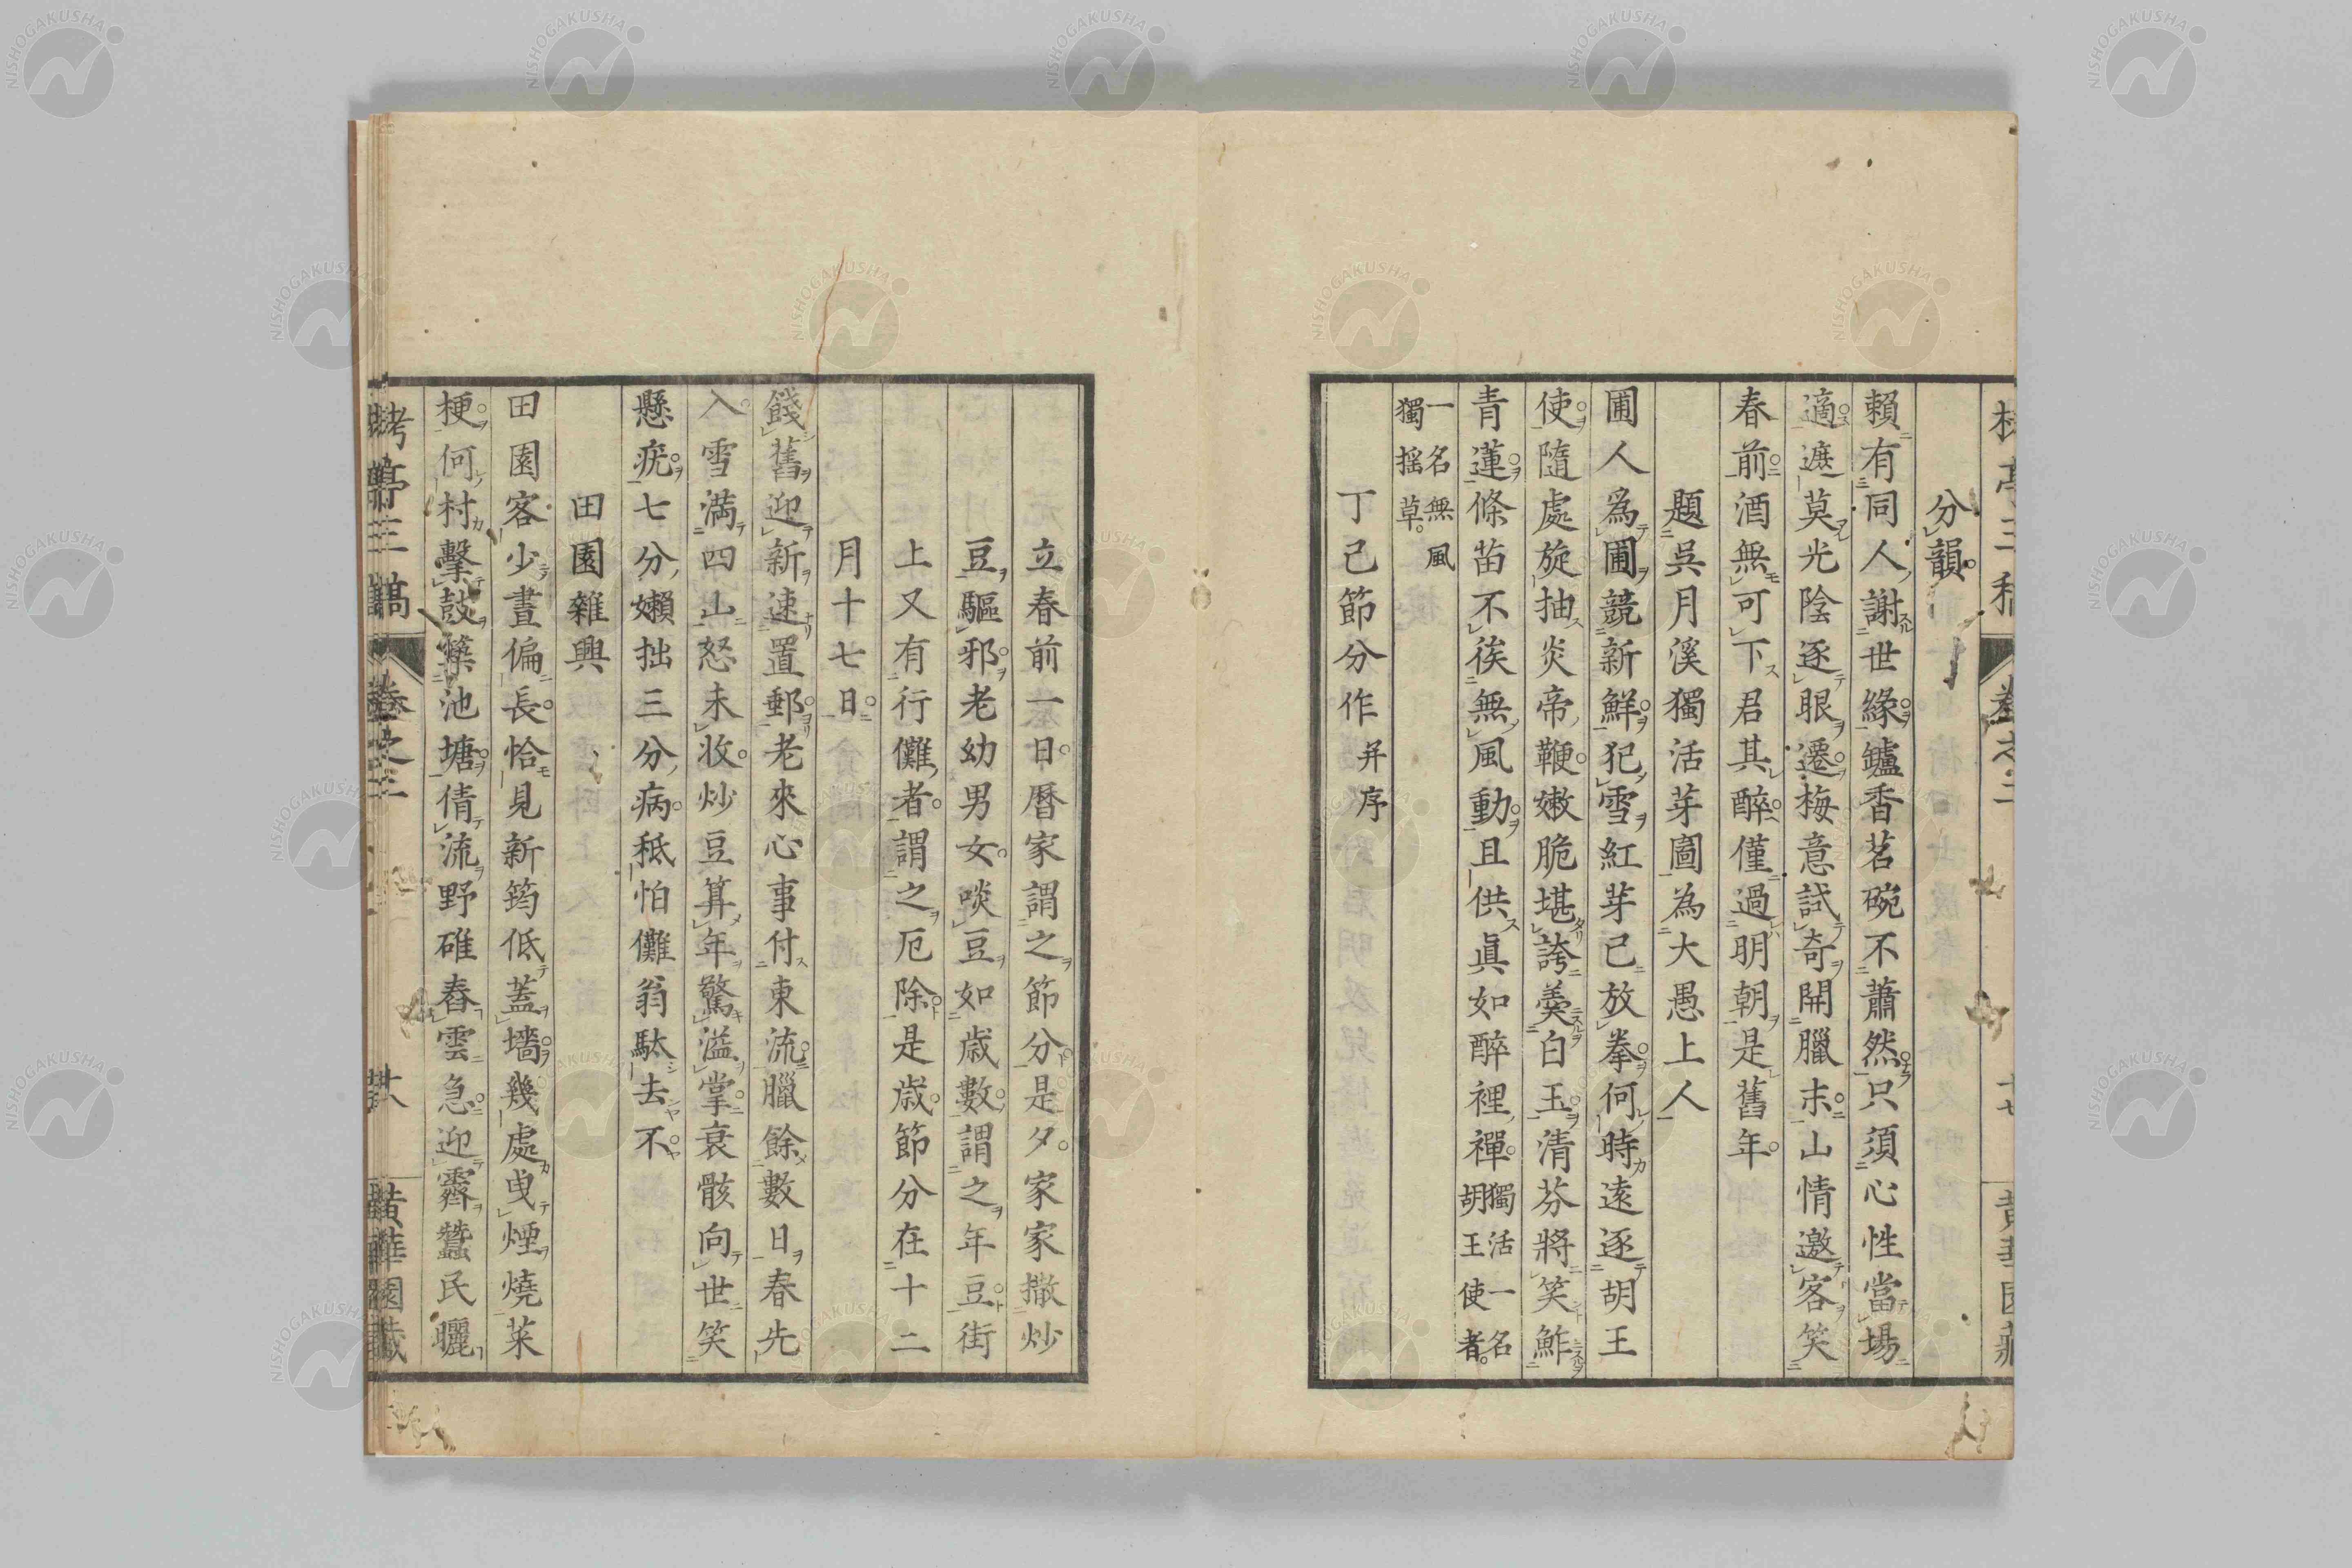 分韻
賴有同人謝世緣鑪香茗碗不蕭然只須心性當場
適遮莫光陰逐眼遷梅意試奇開臘末山情邀客笑
春前酒無可下君其醉僅過明朝是舊年
題吳月溪獨活芽圖為大愚上人
圃人為圃競新鮮犯雪紅芽已放拳何時遠逐胡王
使隨處旋抽炎帝鞭嫩脆堪誇羹白玉清芬將笑鮓
青蓮條苗不俟無風動且供眞如醉裡禪獨活一名胡王使者
一名無風獨搖草
丁己節分作并序
立春前一日曆家謂之節分是夕家家撒炒
豆驅邪老幼男女啖豆如歲數謂之年豆街
上又有行儺者謂之厄除是歲節分在十二
月十七日
餞舊迎新速置郵老來心事付東流臘餘數日春先
入雪滿四山怒未收炒豆算年驚溢掌衰骸向世笑
懸疣七分嬾拙三分病秪怕儺翁駄去不
田園雜興
田園客少晝偏長恰見新筠低蓋墻幾處曳煙燒菜
梗何村擊鼓漦池塘倩流野碓舂雲急迎霽蠶民曬
拷亭三稿 卷之三 黃華園藏